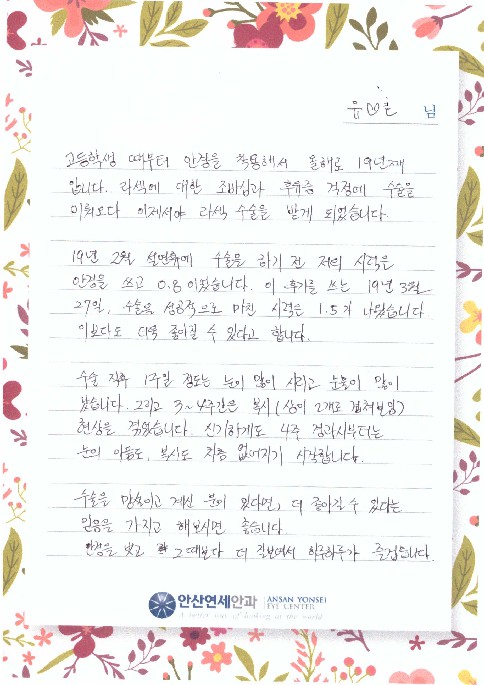 윤♡로 님
고등학생 때부터 안경을 착용해서 올해로 19년째
입니다. 라섹에 대한 조바심과 후유증 걱정에 수술을
미뤄오다 이제서야 라섹 수술을 받게 되었습니다.
19년 2월 설연휴에 수술을 하기 전 저의 시력은
안경을 쓰고 0.8 이었습니다. 이 후기를 쓰는 19년 3월
27일, 수술을 성공적으로 마친 시력은 1.5가 나왔습니다
이보다도 더욱 좋아질 수 있다고 합니다.
수술 직후 1주일 정도는 눈이 많이 시리고 눈물이 많이
났습니다. 그리고 3~4주간은 복시(상이 2개로 겹쳐보임)
현상을 겪었습니다. 신기하게도 4주 경과시부터는
눈의 아픔도, 복시도 차츰 없어지기 시작합니다.
수술을 망설이고 계신 분이 있다면, 더 좋아질 수 있다는
믿음을 가지고 해보시면 좋습니다
안경을 벗고 그때보다 더 잘보여서 하루하루가 즐겁습니다.
안산연세안과 ANSAN YONSEI
EYE CENTER
A better way of looking at the world